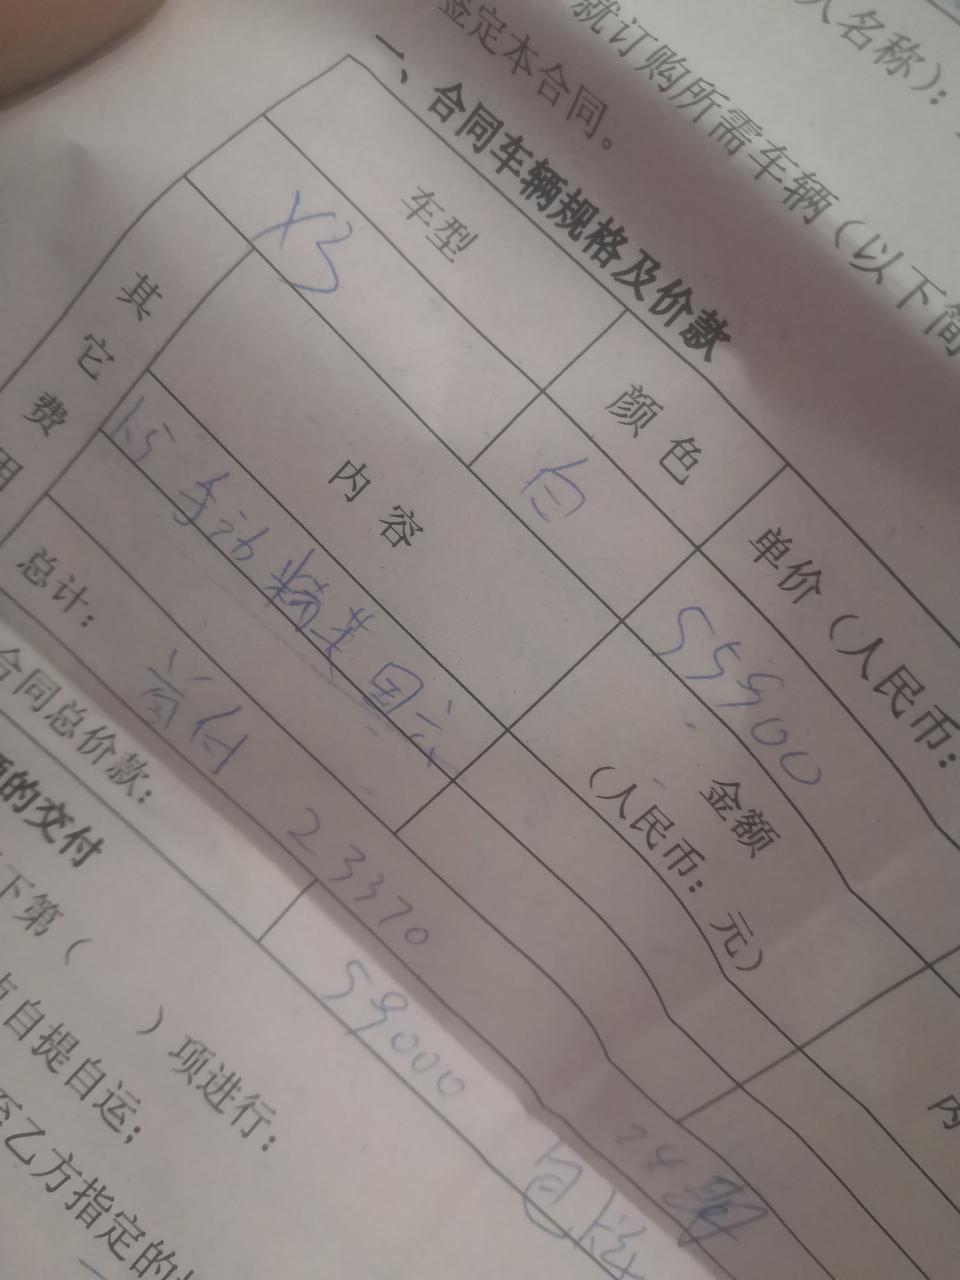 人名称）：
就订购所需车辆（以下简
签定本合同。
一、合同车辆规格及价款
车型
颜 色
单价（人民币：
X3
白
55900
其它费用
内 容
金额
（人民币：元）
内
1.5手动精英国六
总计：
首付 23370
24期
合同总价款：
59000
的交付
下第（ ）项进行：
自提自运；
至乙方指定的